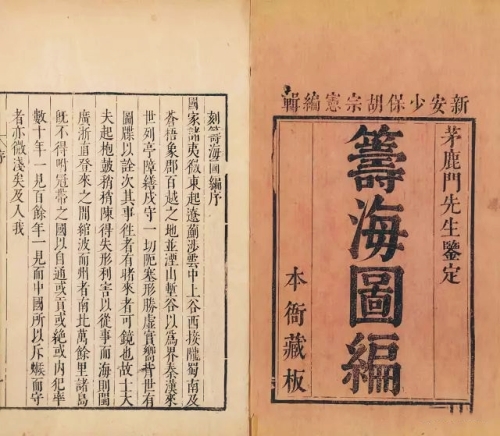 新安少保胡宗憲編輯
茅鹿門先生鑒定
籌海圖編
本衙藏板
刻籌海圖編序
國家諸夷徼東起遼薊涉雲中上谷西接隴蜀南及
蒼梧象郡百越之地並湮山塹谷以爲界秦漢來
世列亭障繕戍守一切阨塞形勝虛實嚮背世有
圖牒以詮次其事往者有睹來者可鏡也故士大
夫起枹鼓稍稍陳得失形利害以從事而海則閩
廣浙直登來之間綰波而州者南北萬餘里諸島
既不得附冠帶之國以自通或貢或絕或內犯率
數十年一見百餘年一見而中國所以斥堠而守
者亦微淺矣及人我